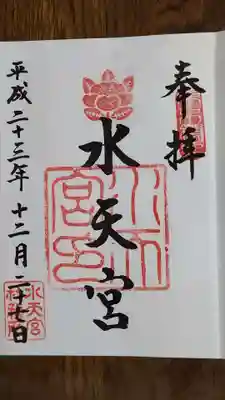 奉拝
水天宮
平成二十三年 十二月二十七日
水天宮印
水天宮